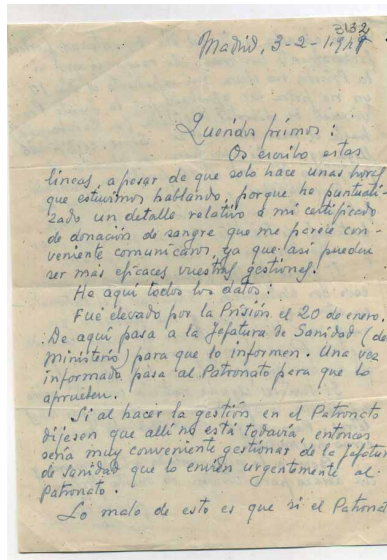 3132
Madrid, 3-2-1.947
Queridos primos:
Os escribo estas
líneas, a pesar de que solo hace unas horas
que estuvimos hablando, porque he puntuali-
zado un detalle relativo a mi certificado
de donación de sangre que me parece con-
veniente comunicaros ya que así pueden
ser más eficaces vuestras gestiones.
He aquí todos los datos:
Fué elevado por la Prisión el 20 de enero.
De aquí pasa a la Jefatura de Sanidad (del
Ministerio) para que lo informen. Una vez
informado, pasa al Patronato para que lo
aprueben.
Si al hacer la gestión en el Patronato
dijesen que allí no está todavía, entonces
sería muy conveniente gestionar de la Jefatura
de Sanidad que lo envíen urgentemente al
Patronato.
Lo malo de esto es que si el Patronato